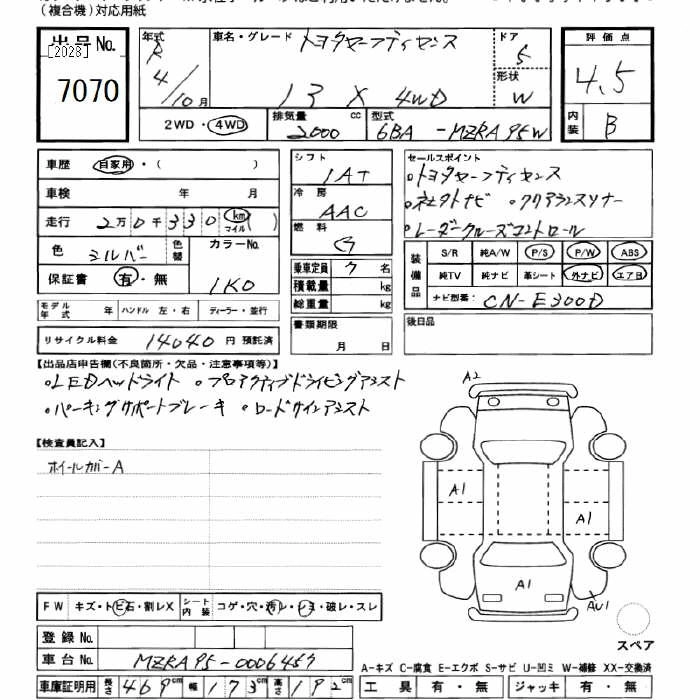 (複合機)対応用紙
出品No.
[2023]
7070
年式 R 4/10月
車名・グレード トヨタセーフティセンス
13 X 4WD
ドア 5
形状 W
評価点 4.5
内装 B
2WD・4WD
排気量 2000 cc
型式 6BA-MZRA95W
車歴 自家用・( )
車検 年 月
走行 2万0千330 km マイル( )
色 シルバー 色替 カラーNo. 1K0
保証書 有・無
モデル年式 年 ハンドル 左・右 ディーラー・並行
リサイクル料金 14040 円 預託済
シフト IAT
冷房 AAC
燃料 G
乗車定員 7 名
積載量 kg
総重量 kg
書類期限 月 日
セールスポイント
・トヨタセーフティセンス
・ネオクトナビ ・クリアランスソナー
・レーダークルーズコントロール
装備品
S/R 純A/W P/S P/W ABS
純TV 純ナビ 革シート 外ナビ エアB
ナビ型番: CN-E300D
後日品
【出品店申告欄(不良箇所・欠品・注意事項等)】
・LEDヘッドライト ・プロアクティブドライビングアシスト
・パーキングサポートブレーキ ・ロードサインアシスト
【検査員記入】
ホイールカバーA
A2
A1
A1
A1
AU1
スペア
FW キズ・トビ石・割レX シート内装 コゲ・穴・汚レ・シミ・破レ・スレ
登録No.
車台No. MZRA95-0006457
車庫証明用 長さ 469cm 幅 173cm 高さ 192cm
A-キズ C-腐食 E-エクボ S-サビ U-凹ミ W-補修 XX-交換済
工具 有・無 ジャッキ 有・無